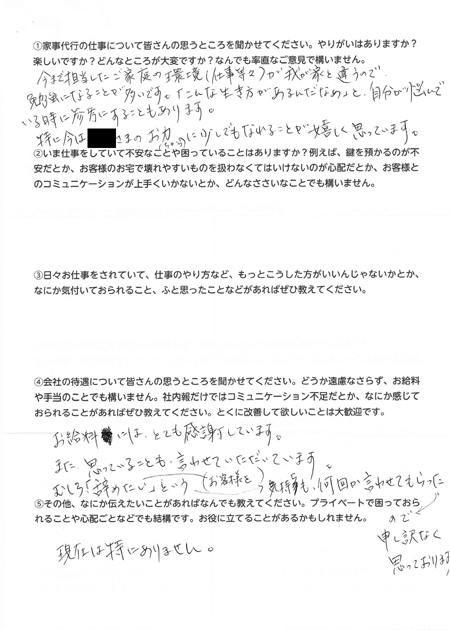 ①家事代行の仕事について皆さんの思うところを聞かせてください。やりがいはありますか？
楽しいですか？どんなところが大変ですか？なんでも率直なご意見で構いません。
今まで担当したご家庭の環境(仕事等々)が我が家と違うので、
勉強になることが多いです。「こんな生き方があるんだなぁ」と、自分が悩んで
いる時に参考にすることもあります。
特に今は さまのお力 に少しでもなれることが嬉しく思っています。
②いま仕事をしていて不安なことや困っていることはありますか？例えば、鍵を預かるのが不
安だとか、お客様のお宅で壊れやすいものを扱わなくてはいけないのが心配だとか、お客様と
のコミュニケーションが上手くいかないとか、どんなささいなことでも構いません。
③日々お仕事をされていて、仕事のやり方など、もっとこうした方がいいんじゃないかとか、
なにか気付いておられること、ふと思ったことなどがあればぜひ教えてください。
④会社の待遇について皆さんの思うところを聞かせてください。どうか遠慮なさらず、お給料
や手当のことでも構いません。社内報だけではコミュニケーション不足だとか、なにか感じて
おられることがあればぜひ教えてください。とくに改善して欲しいことは大歓迎です。
お給料 には、とても感謝しています。
また、思っていることも、言わせていただいています。
むしろ「辞めたい」という (お客様を) 気持も、何回か言わせてもらった
ので
申し訳なく
思っております
⑤その他、なにか伝えたいことがあればなんでも教えてください。プライベートで困っておら
れることや心配ごとなどでも結構です。お役に立てることがあるかもしれません。
現在は特にありません。